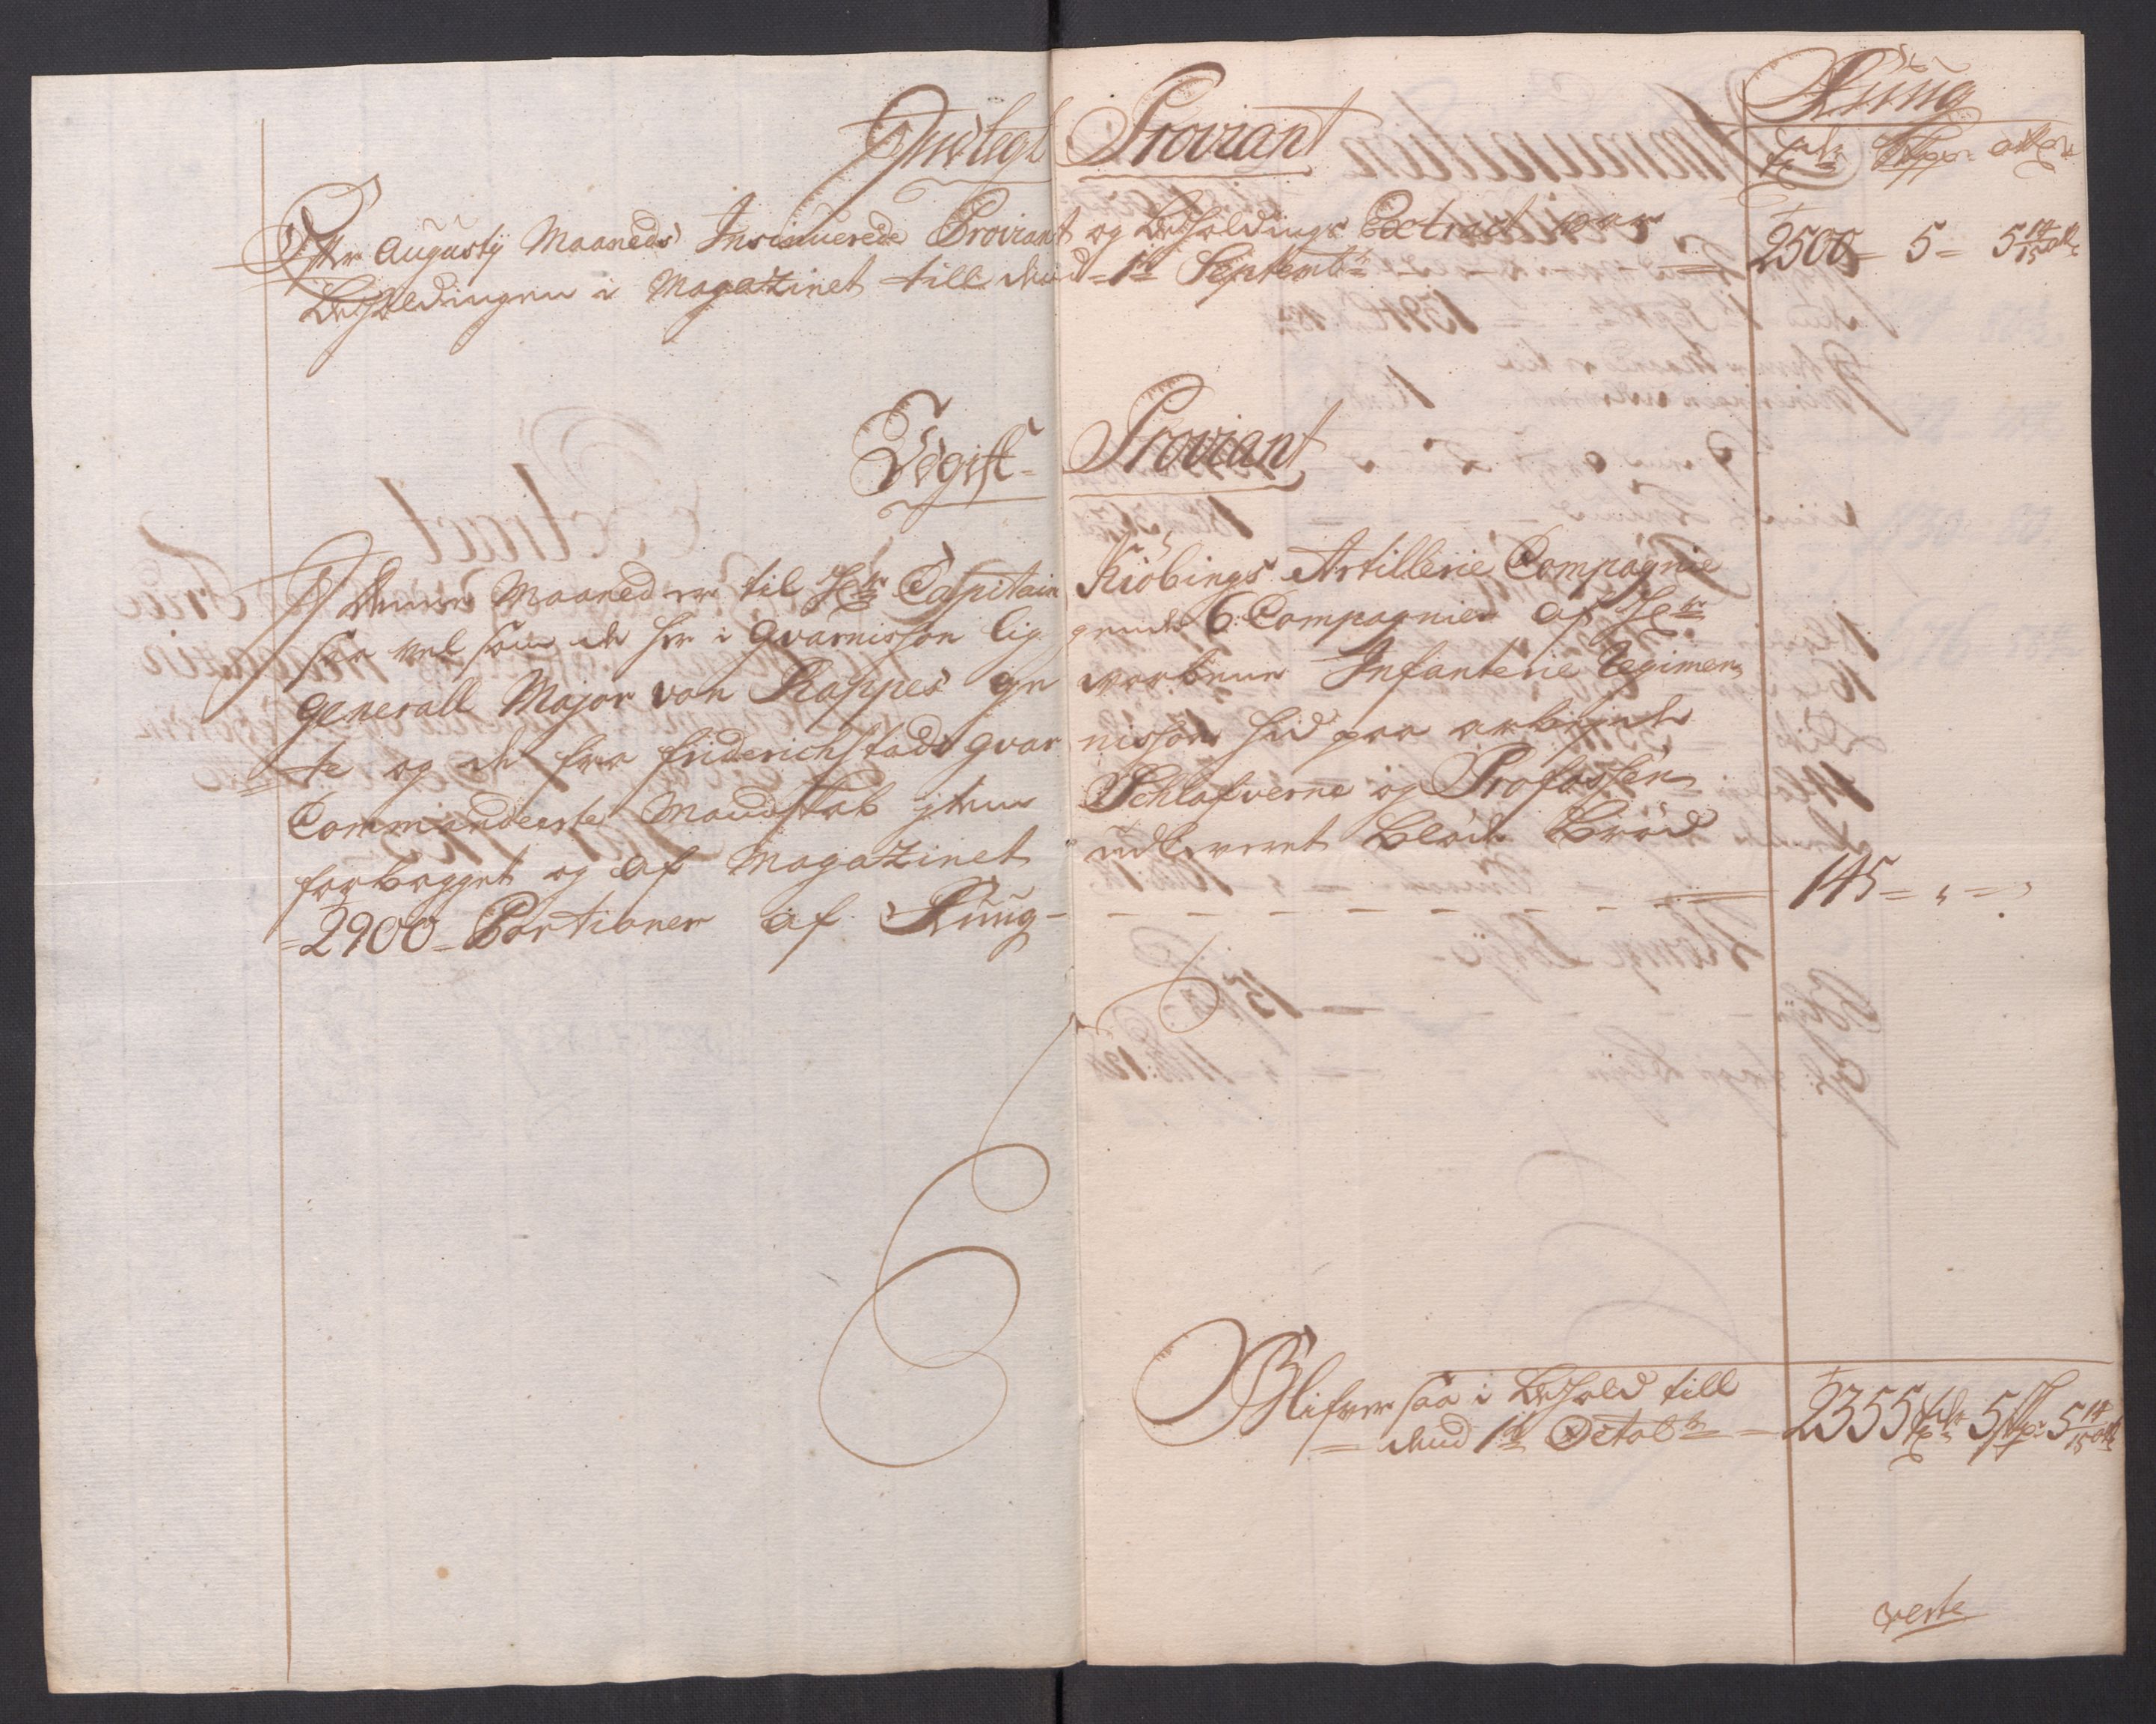 Indtegt Proviant
Rúúg
Tdr Skpr ottgr
Efter Augusty Maaneds Insinuerede Proviant og Beholdings Extract var
Beholdingen i Magazinet till dend 1te Septembr 2500 = 5 = 5 14/15 ottr
Udgift = Proviant
I Denne Maaned er til Hr Capitain Kiöbings Artillerie Compagnie
saa vel som de her i Qvarnisson lig gende 6 Compagnier af Hr
Generall Major von Rappes ge worbene Infanterie Regimen
te og de fra Friderichstads Qvar nisson hid paa arbejde
Commanderede Mandskab jtem Schlafverne og Profossen
forbagget og af Magazinet udleveret Blöde Bröd
= 2900 = Portioner af Rúúg = 145 = " = "
Blifver saa i Behold till
dend 1te Octobr = 2355 Tdr 5 Skpr 5 14/15 ottr
verte